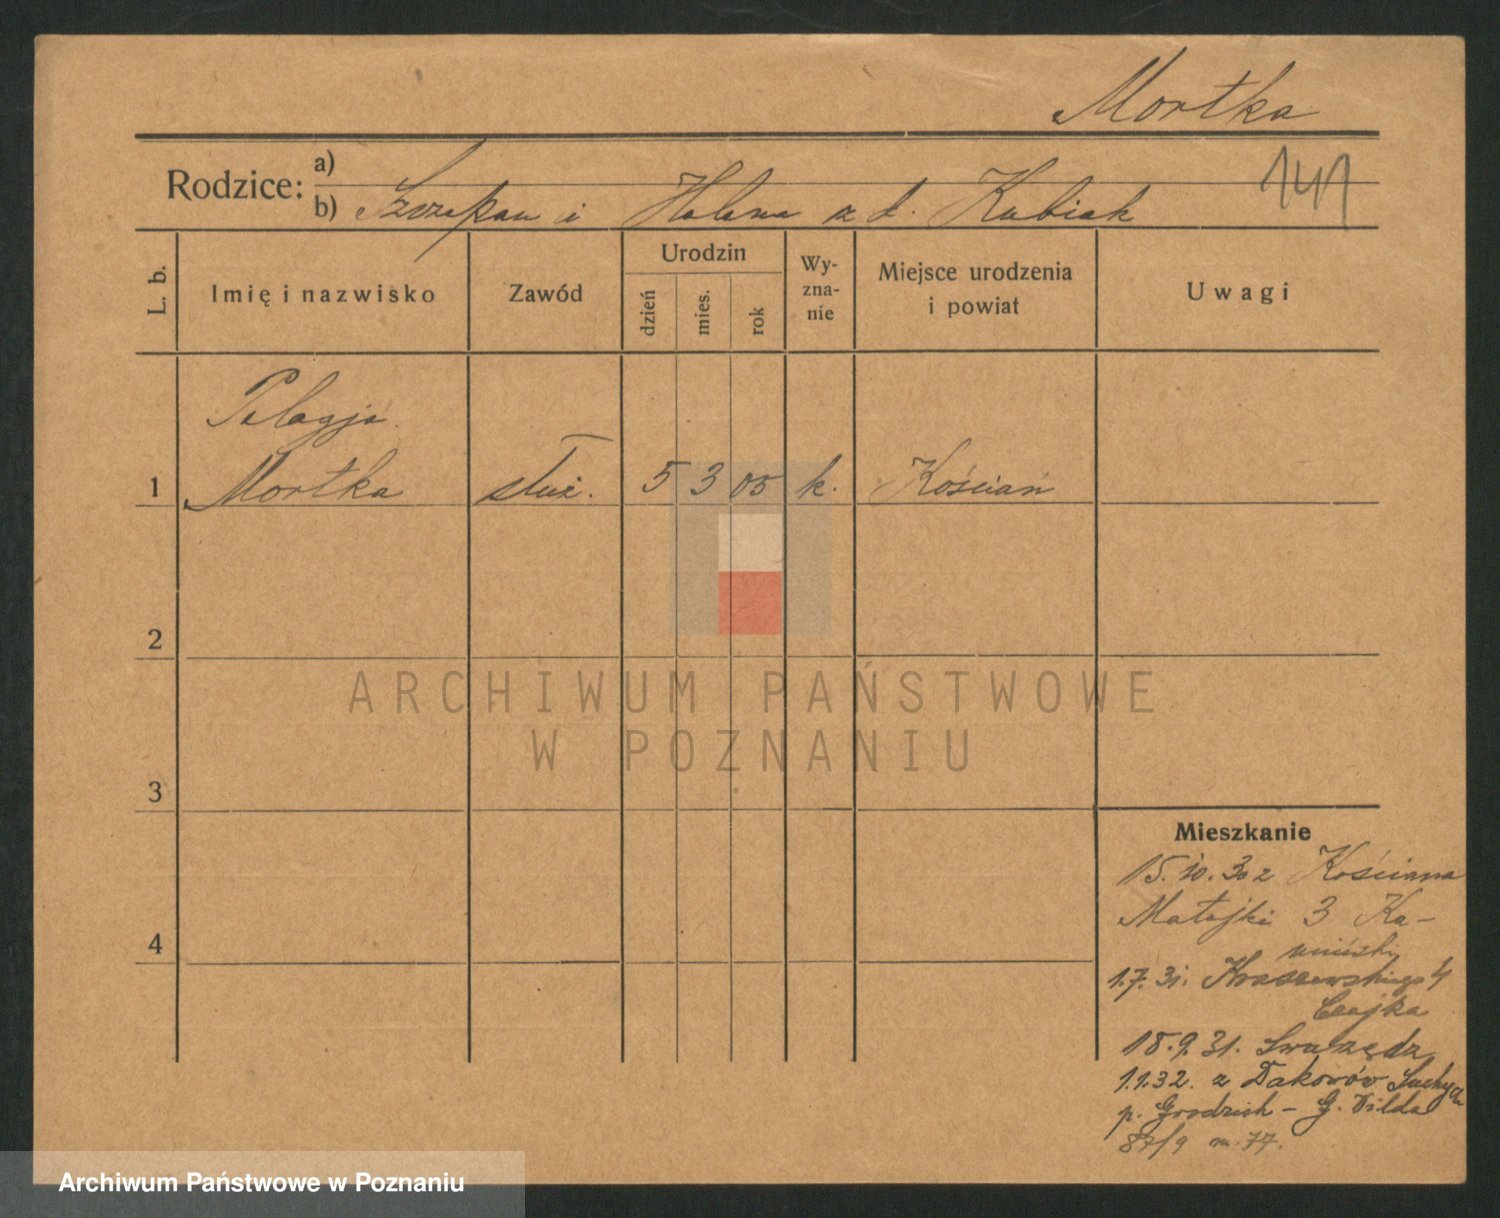 Mortka
Rodzice:
a)
b) Szczepan i Helena z d. Kubiak
141
L. b.
Imię i nazwisko
Zawód
Urodzin
dzień
mies.
rok
Wy-
zna-
nie
Miejsce urodzenia
i powiat
Uwagi
Pelagja
1 Mortka służ. 5 3 05 k. Kościan
2
3
4
Mieszkanie
15.10.30 z Kościana
Matejki 3 Ka-
miński
1.7.31. Kraszewskiego 4
Czajka
18.9.31. Swarzędz
1.1.32. z Dakowów Suchych
p. Grodzisk - G. Wilda
87/9 m. 77.
ARCHIWUM PAŃSTWOWE
W POZNANIU
Archiwum Państwowe w Poznaniu